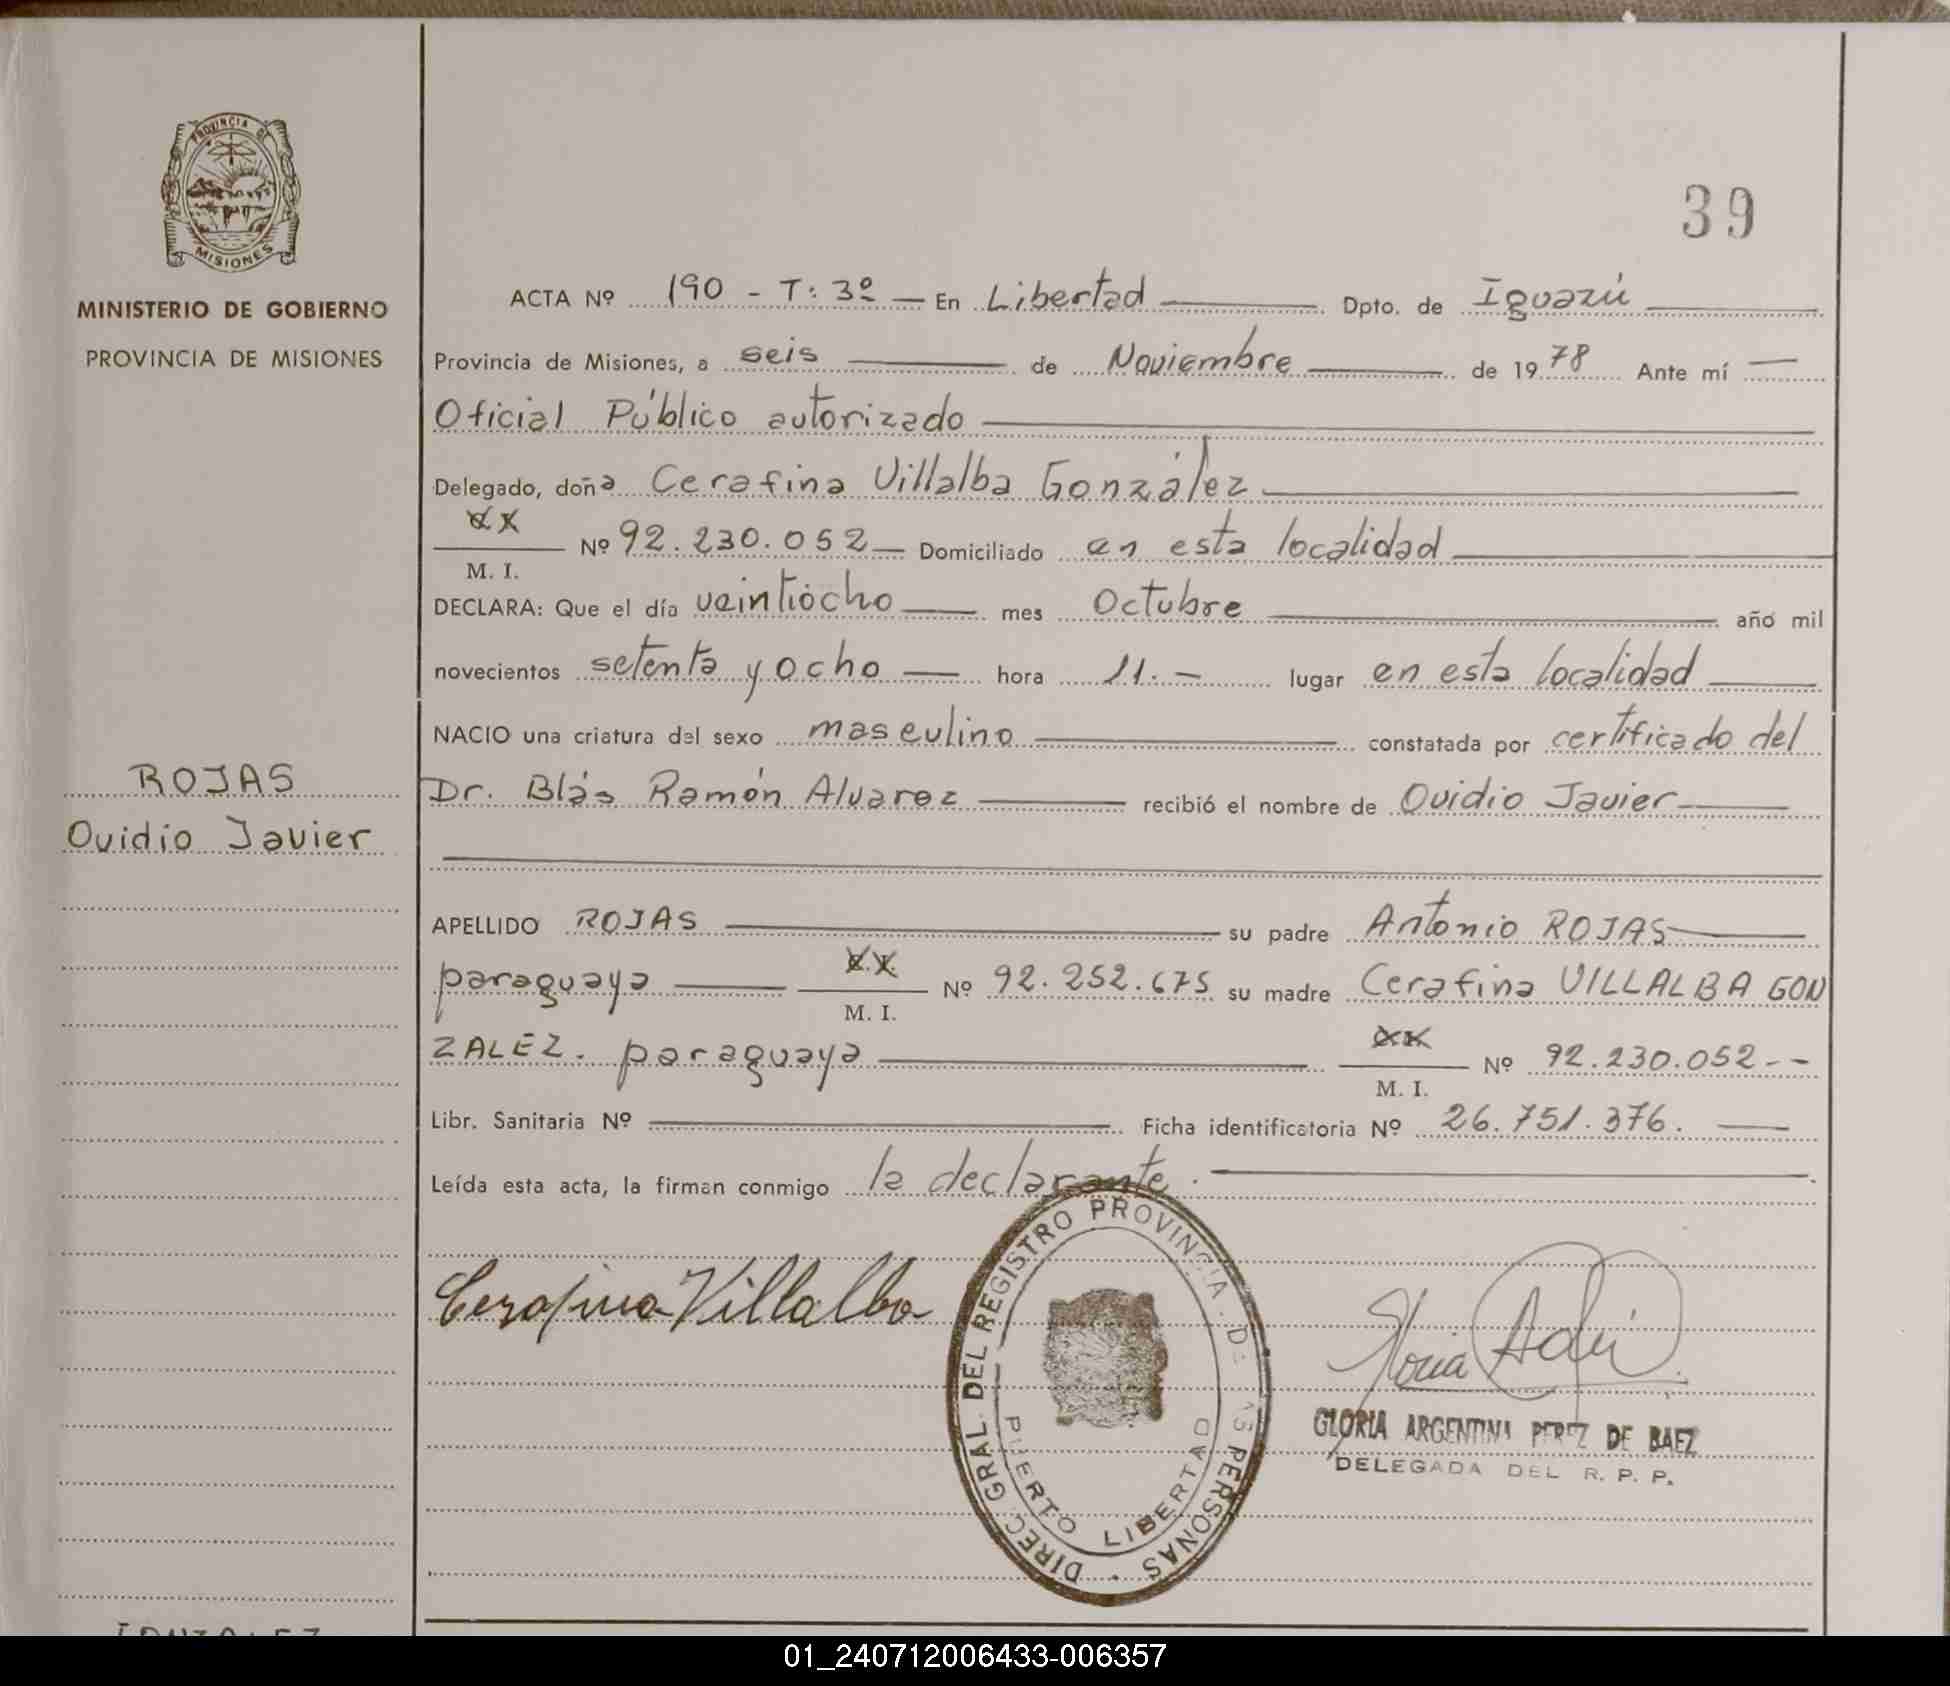 PROVINCIA DE
MISIONES
MINISTERIO DE GOBIERNO
PROVINCIA DE MISIONES
ROJAS
Ovidio Javier
39
ACTA Nº 190 - T: 3º — En Libertad Dpto. de Iguazú
Provincia de Misiones, a seis de Noviembre de 1978 Ante mí
Oficial Público autorizado
Delegado, doña Cerafina Villalba González
M. I. Nº 92.230.052 — Domiciliado en esta localidad
DECLARA: Que el día veintiocho mes Octubre año mil
novecientos setenta y ocho hora 11.- lugar en esta localidad
NACIO una criatura del sexo masculino constatada por certificado del
Dr. Blás Ramón Alvarez recibió el nombre de Ovidio Javier
APELLIDO ROJAS su padre Antonio ROJAS
paraguaya M. I. Nº 92.252.675 su madre Cerafina VILLALBA GON
ZALEZ. paraguaya M. I. Nº 92.230.052--
Libr. Sanitaria Nº Ficha identificatoria Nº 26.751.376.
Leída esta acta, la firman conmigo la declarante.
Cerafina Villalba
DIREC. GRAL. DEL REGISTRO PROVINCIAL DE LAS PERSONAS
PUERTO LIBERTAD
Gloria
GLORIA ARGENTINA PEREZ DE BAEZ
DELEGADA DEL R. P. P.
01_240712006433-006357